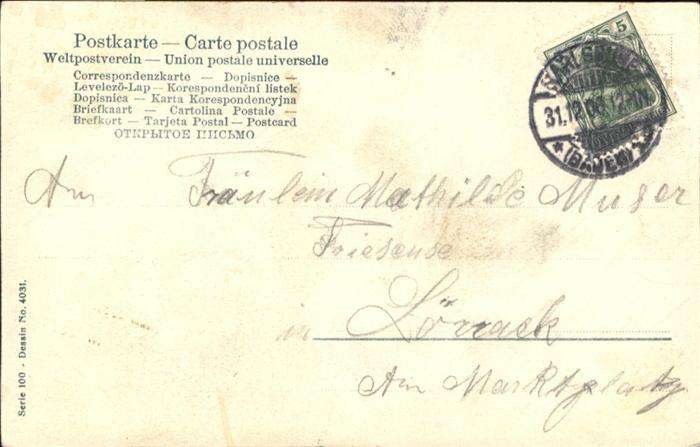 Postkarte — Carte postale
Weltpostverein — Union postale universelle
Correspondenzkarte — Dopisnice —
Levelező-Lap — Korespondenční listek
Dopisnica — Karta Korespondencyjna
Briefkaart — Cartolina Postale —
Brefkort — Tarjeta Postal — Postcard
ОТКРЫТОЕ ПИСЬМО
5
KARLSRUHE
31.12.
(BADEN)
An Fräulein Mathilde Muser
Friseuse
in Lörrach
Am Marktplatz
Serie 100 - Dessin No. 4031.